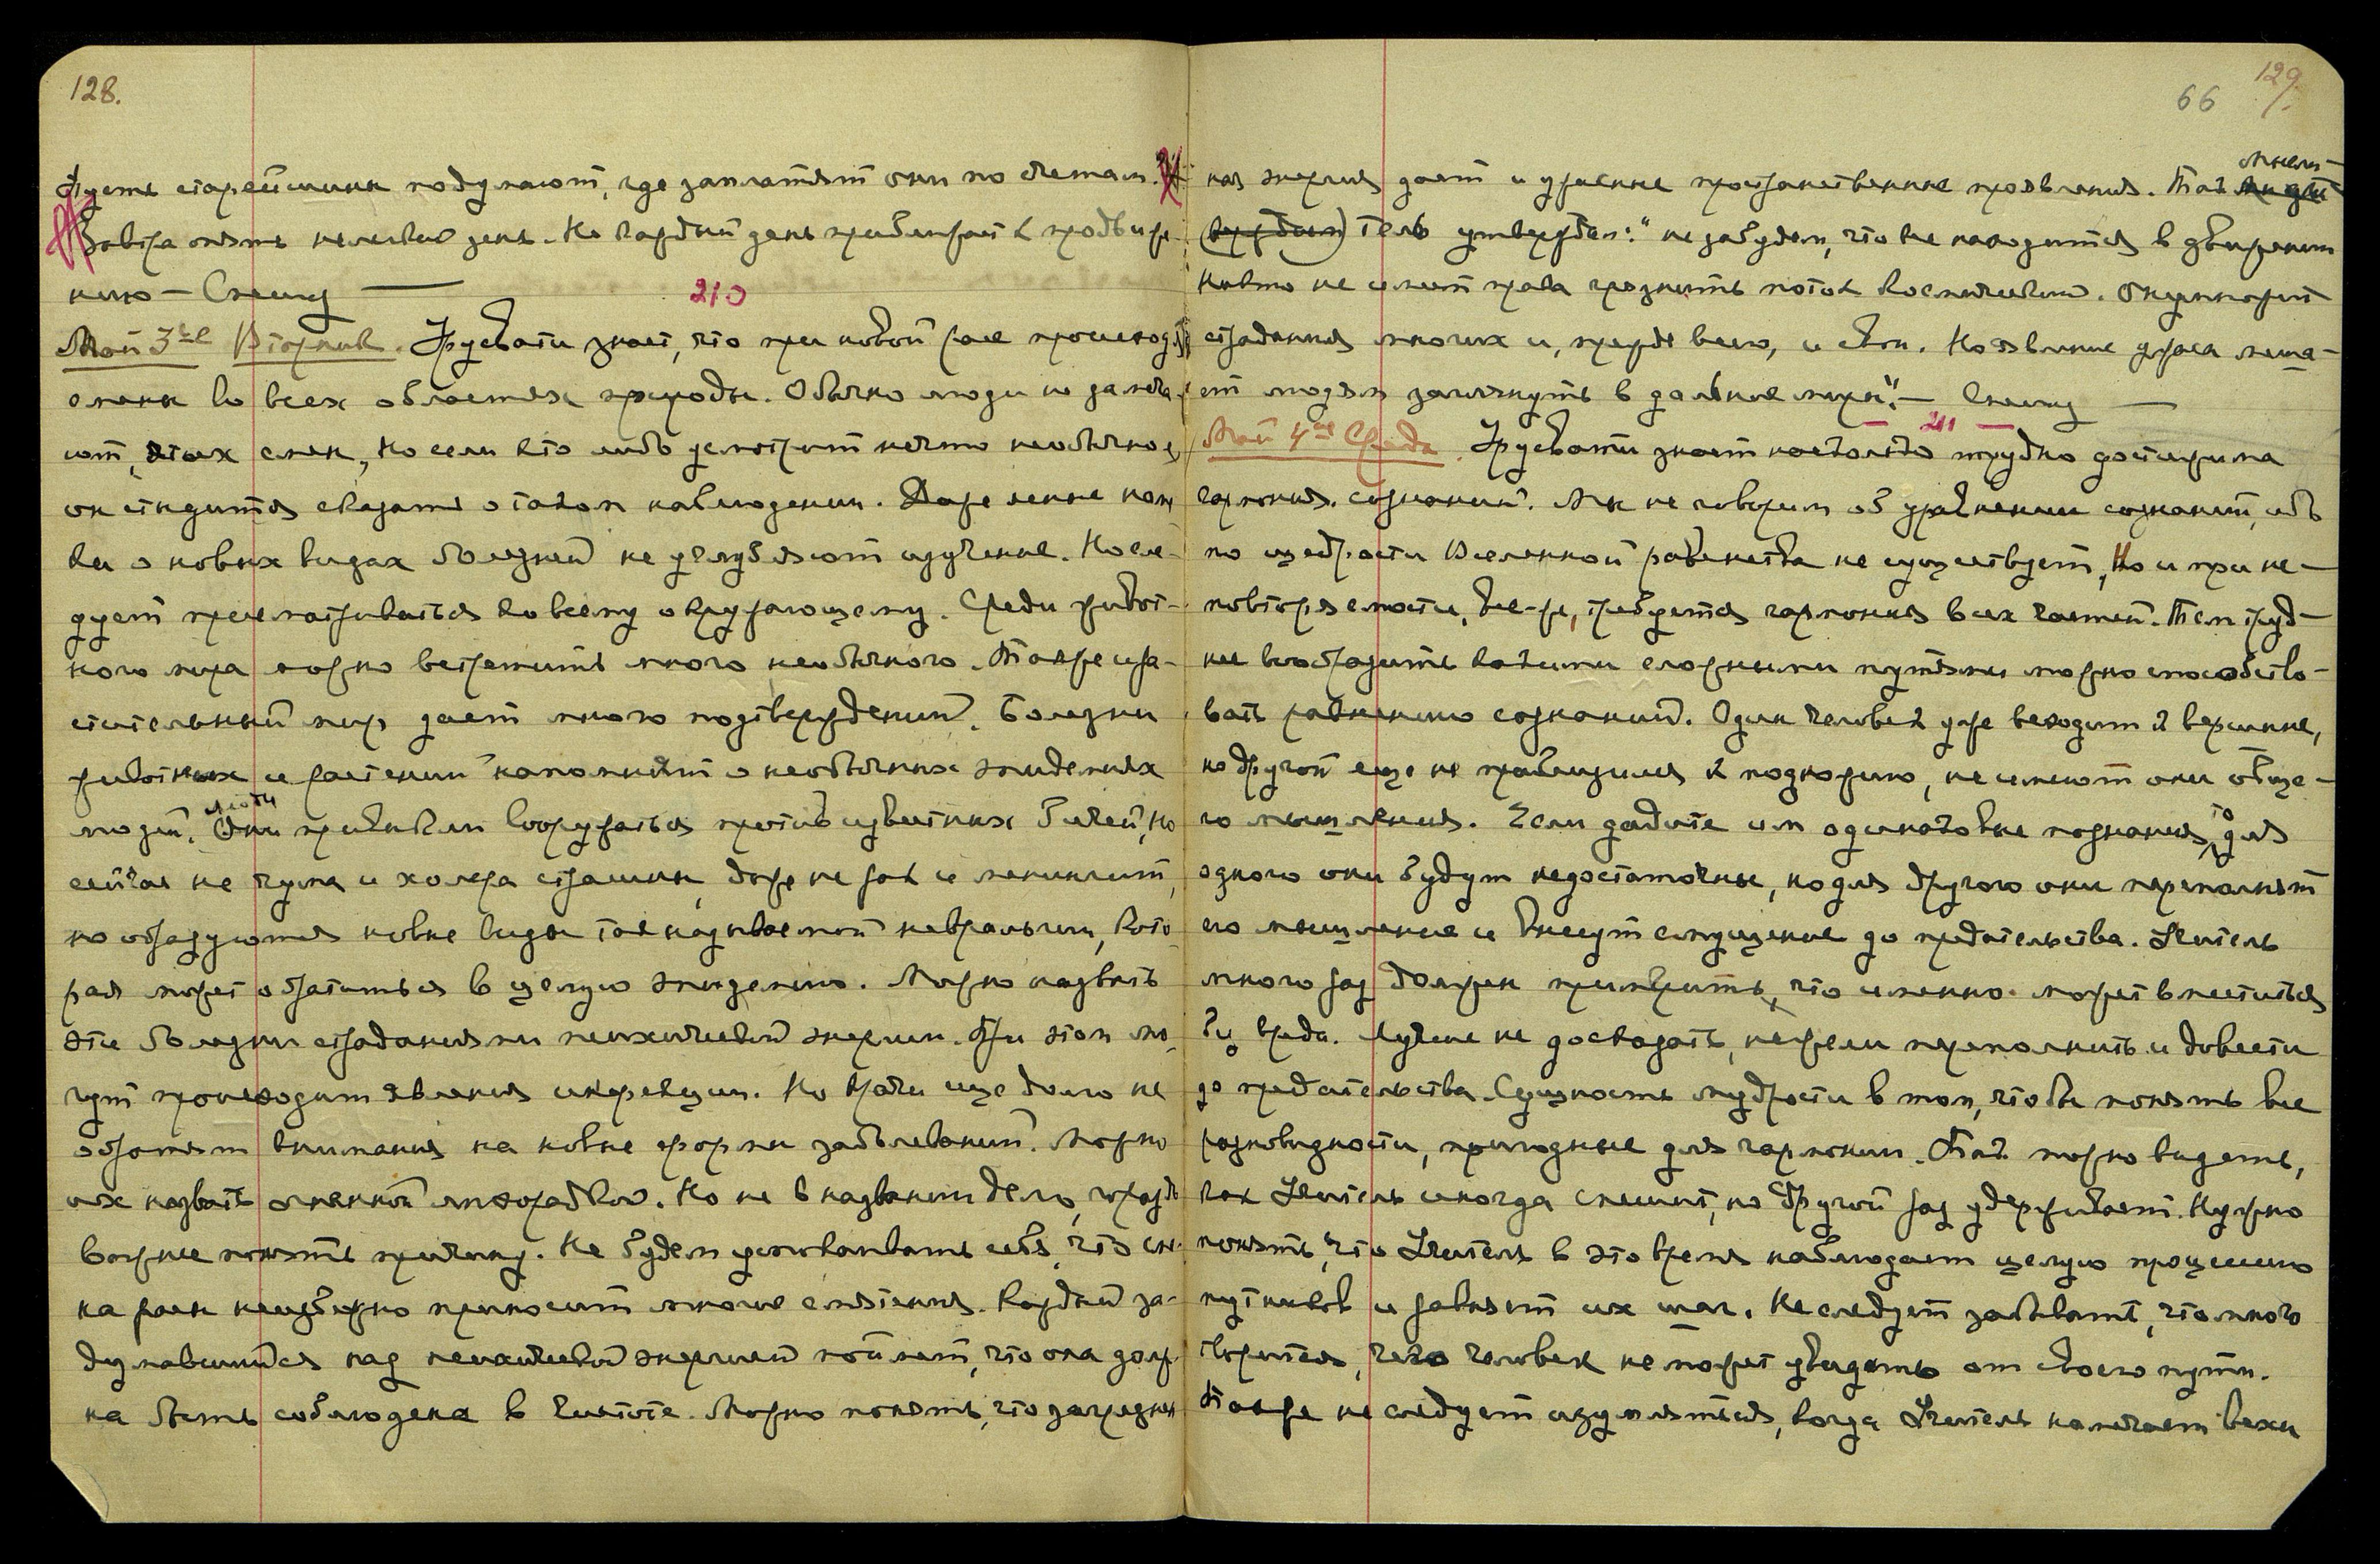 128.
Пусть старейшины подумают, где заплатят они по счетам.
Завтра опять нелегкий день. Но каждый день приближает к продвиже-
нию — Спешу —
210
Май 3ье Вторник. Урусвати знает, что при новой расе происходят
смены во всех областях природы. Обычно люди не замеча-
ют этих смен, но если кто либо усмотрит нечто необычное,
он стидится сказать о таком наблюдении. Даже
о новых видах болезней не углубляют изучение. Но сле-
дует присматриваться ко всему окружающему. Среди живот-
ного мира можно встретить много необычного. Также и ра-
стительный мир дает много подтверждений. Болезни
животных и растений напомнят о необычных эпидемиях
людей. Люди
Они привыкли вооружаться против известных бичей, но
сейчас не чума и холера страшны, даже не рак и менингит,
но образуются новые виды так называемой невральгии, кото-
рая может обратиться в целую эпидемию. Можно назвать
эти болезни страданиями психической энергии. При этом мо-
гут происходит явления инфекции. Но врачи еще долго не
обратят внимания на новые формы заболеваний. Можно
их назвать огненной лихорадкой. Но не в названии дело, гораздо
важнее понять причину. Не будем успокаивать себя, что сме-
на расы неизбежно приносит многие смятения. Каждый за-
думавшийся над психической энергией поймет, что она долж-
на быть соблюдена в чистоте. Можно понять, что загрязнен
129.
66
ная энергия дает и уродные пространственные проявления. Так Мысли-
тель утверждал: "не забудем, что все находится в движении
Никто не имеет права грязнить поток космический. Он умножит
страдания многих и, прежде всего, и свои. Но явление ужаса меша-
ет людям заглянуть в дальние миры". — Спешу —
211
Май 4ое Среда. Урусвати знает насколько трудно достижима
гармония сознаний. Мы не говорим об уравнении сознаний, ибо
по щедрости Вселенной равенства не существует, Но и при не-
повторяемости, все-же, требуется гармония всех частей. Тем труд-
нее вообразить какими сложными путями можно способство-
вать равнению сознаний. Один человек уже восходит к вершине,
но другой еще не приблизился к подножию, не имеют они обще-
го мышления. Если дадите им одинаковые познания, то для
одного они будут недостаточны, но для другого они переполнят
его мышление и внесут смущение до предательства. Учитель
много раз должен примерить, что именно может вместиться
без вреда. Лучше не досказать, нежели переполнить и довести
до предательства. Сущность мудрости в том, чтобы понять все
разновидности, пригодные для гармонии. Так можно видеть,
как Учитель иногда спешит, но другой раз удерживает. Нужно
понять, что Учитель в это время наблюдает целую процессию
путников и равняет их шаг. Не следует забывать, что много
творится, чего человек не может увидеть от своего пути.
Также не следует изумляться, когда Учитель намечает вехи